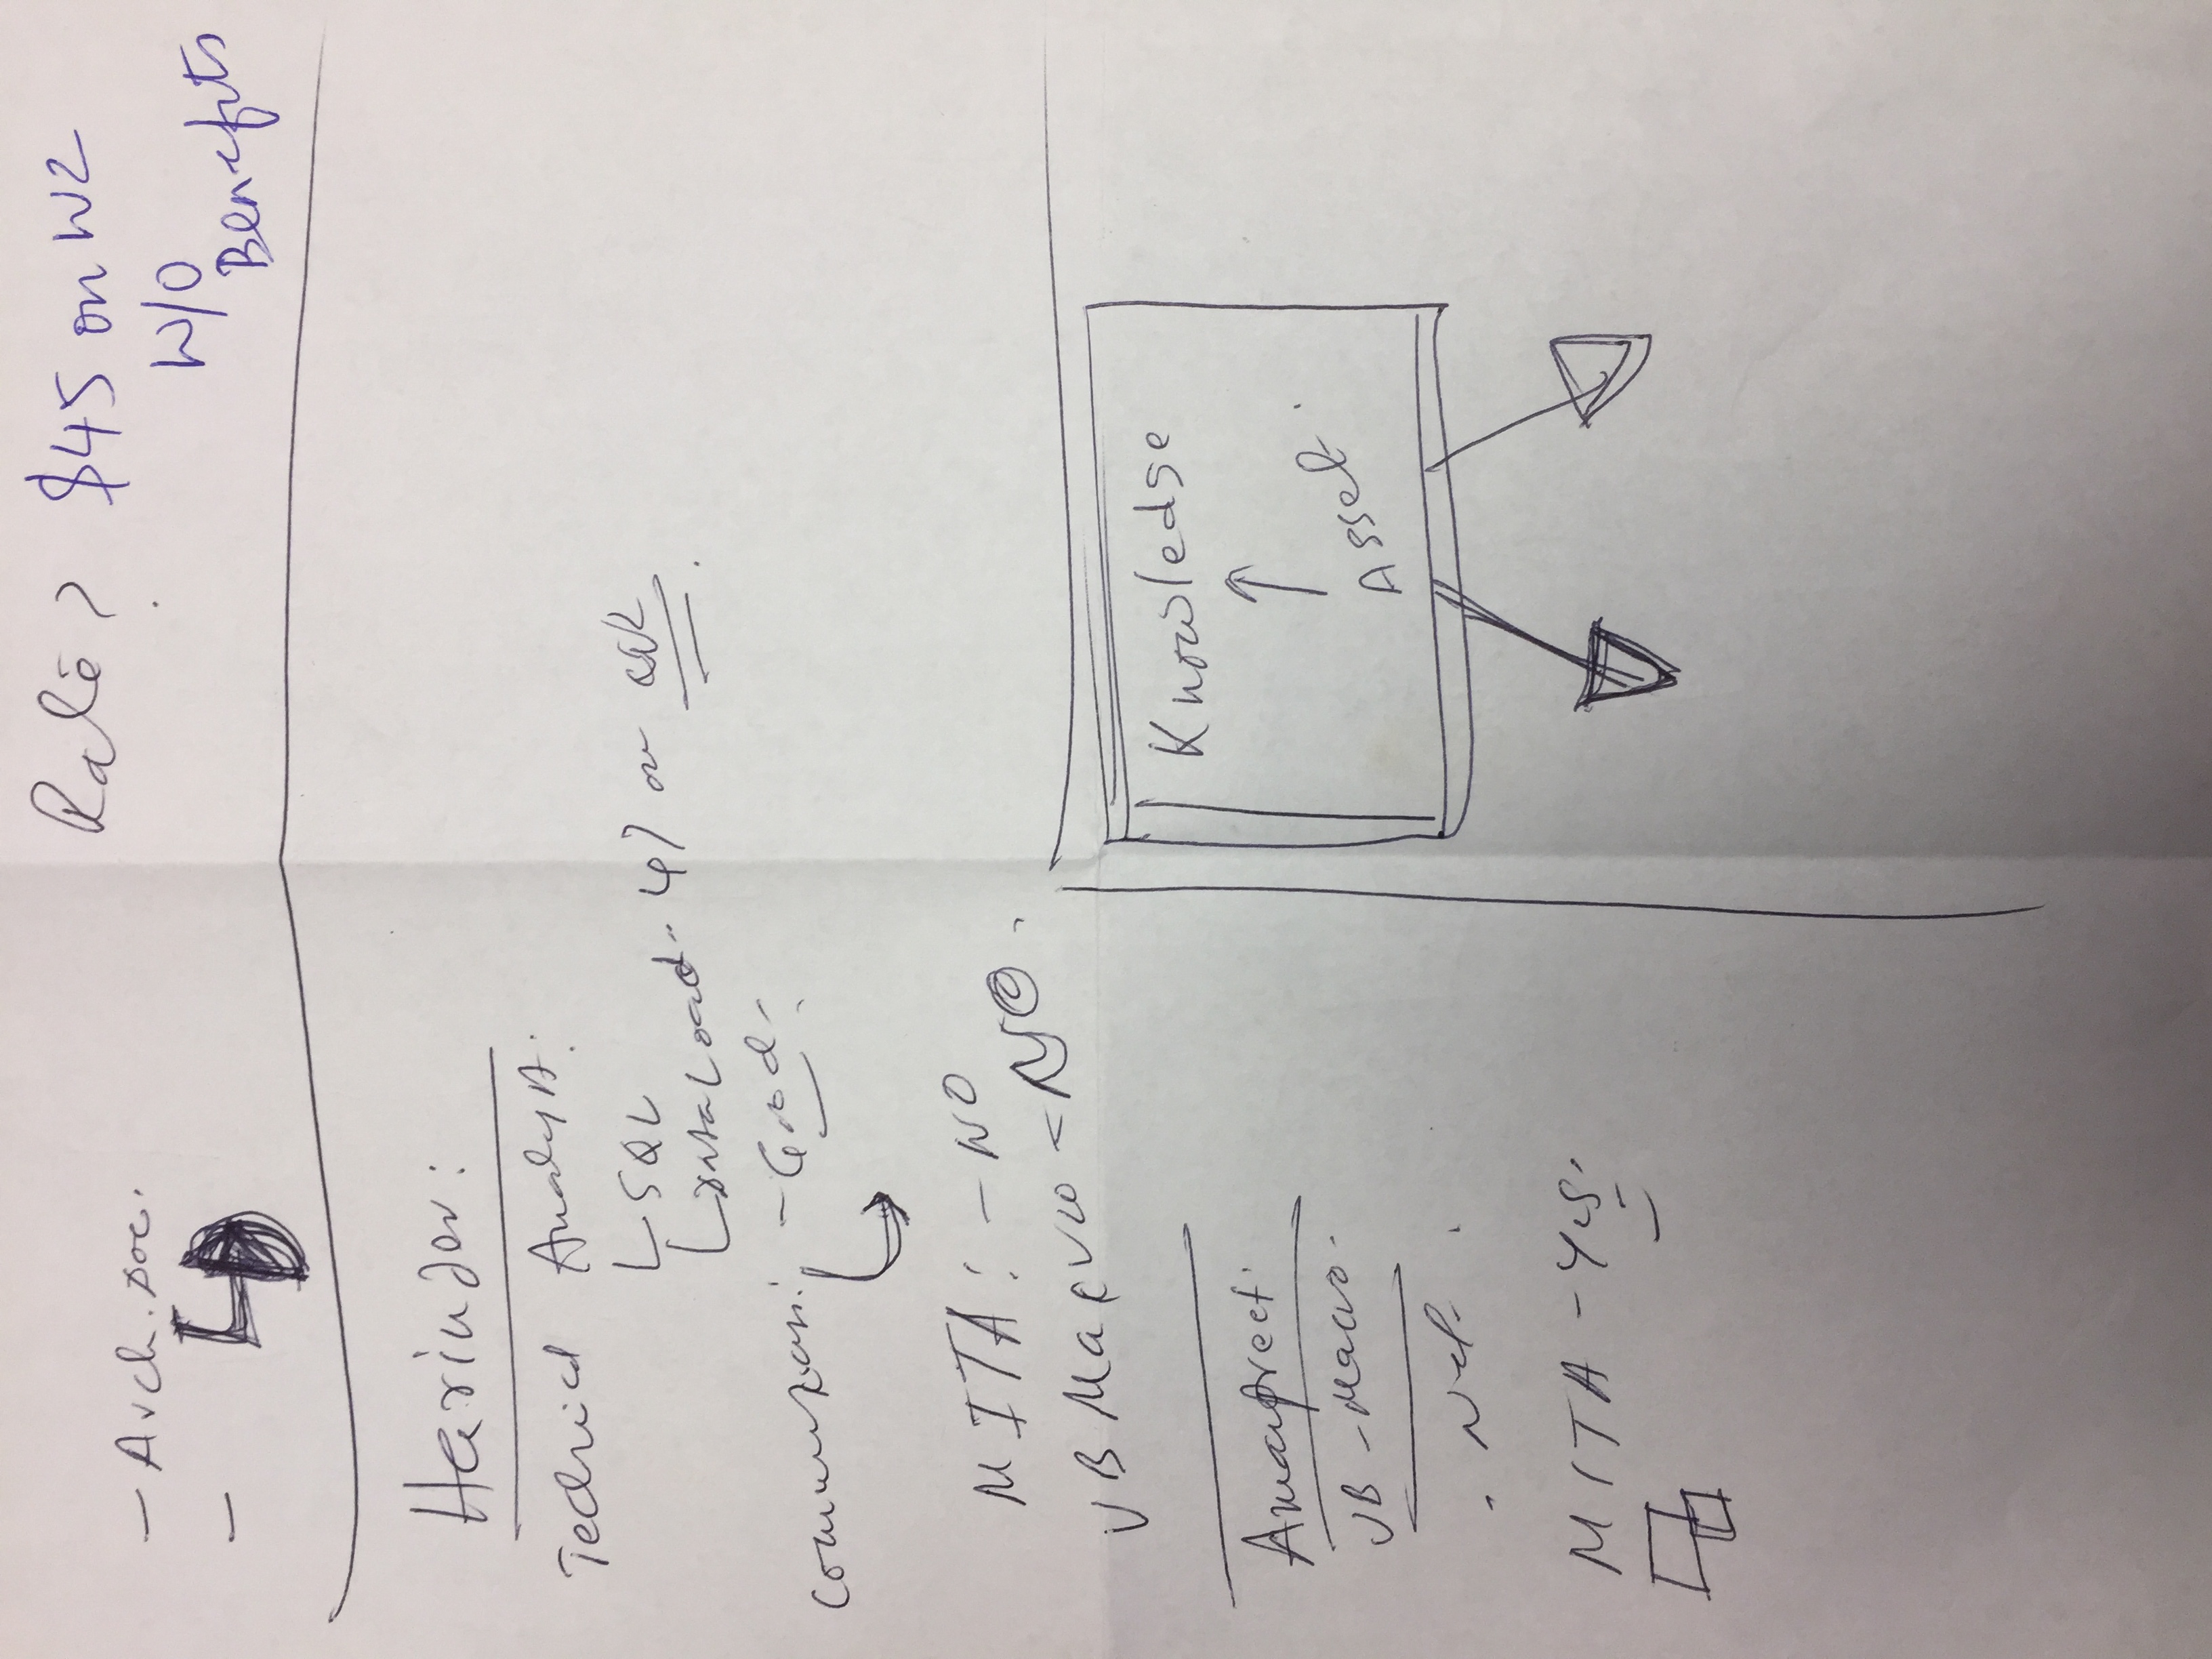 Rate? $45 on W2
W/O
Benefits
- Arch. Doc.
-
Harinder:
Technical Analyst.
SQL
Data Load - 4/ on
Communication: - Good.
MITA: - NO
VB Macro - NO.
Amanpreet.
VB - Macro.
. Net.
MITA - Yes.
Knowledge
Asset.